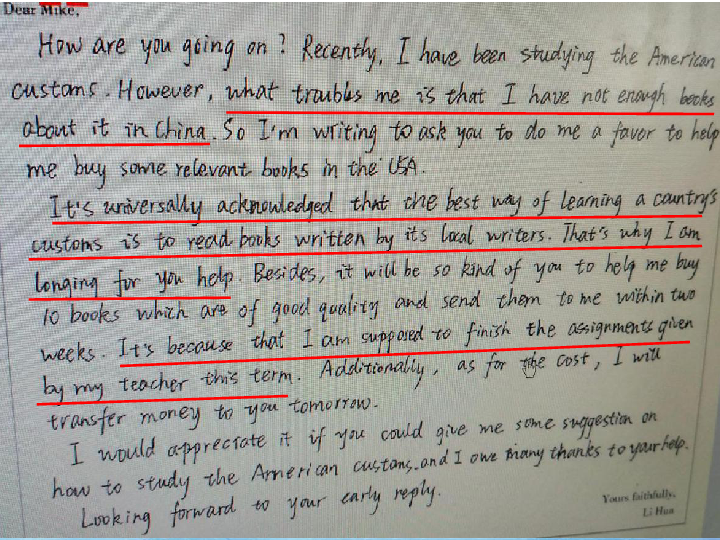 Dear Mike,
How are you going on? Recently, I have been studying the American
customs. However, what troubles me is that I have not enough books
about it in China. So I'm writing to ask you to do me a favor to help
me buy some relevant books in the USA.
It's universally acknowledged that the best way of learning a country's
customs is to read books written by its local writers. That's why I am
longing for you help. Besides, it will be so kind of you to help me buy
10 books which are of good quality and send them to me within two
weeks. It's because that I am supposed to finish the assignments given
by my teacher this term. Additionally, as for the cost, I will
transfer money to you tomorrow.
I would appreciate it if you could give me some suggestion on
how to study the American customs.and I owe many thanks to your help.
Looking forward to your early reply.
Yours faithfully,
Li Hua